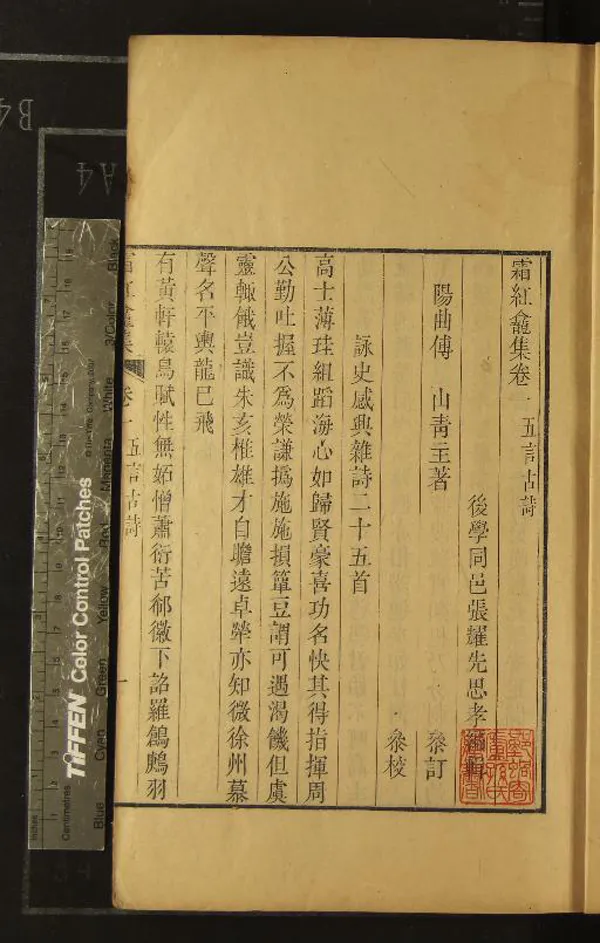 霜紅龕集卷一 五言古詩
後學同邑張耀先思孝編輯
陽曲傅 山青主著
叅訂
叅校
詠史感興雜詩二十五首
高士薄珪組蹈海心如歸賢豪喜功名快其得指揮周
公勤吐握不爲榮謙撝施施損簞豆謂可遇渴饑但虞
靈輒餓豈識朱亥椎雄才自瞻遠卓犖亦知微徐州慕
聲名平輿龍已飛
有黃軒轅鳥賦性無妬憎蕭衍苦郗徽下詔羅鶬鷓羽
霜紅龕集 卷一五言古詩 一
TIFFEN Color Control Patches
© The Tiffen Company, 2007
Inches
Centimetres
Blue
Cyan
Green
Yellow
Red
Magenta
White
3/Color
Black
A4
B4